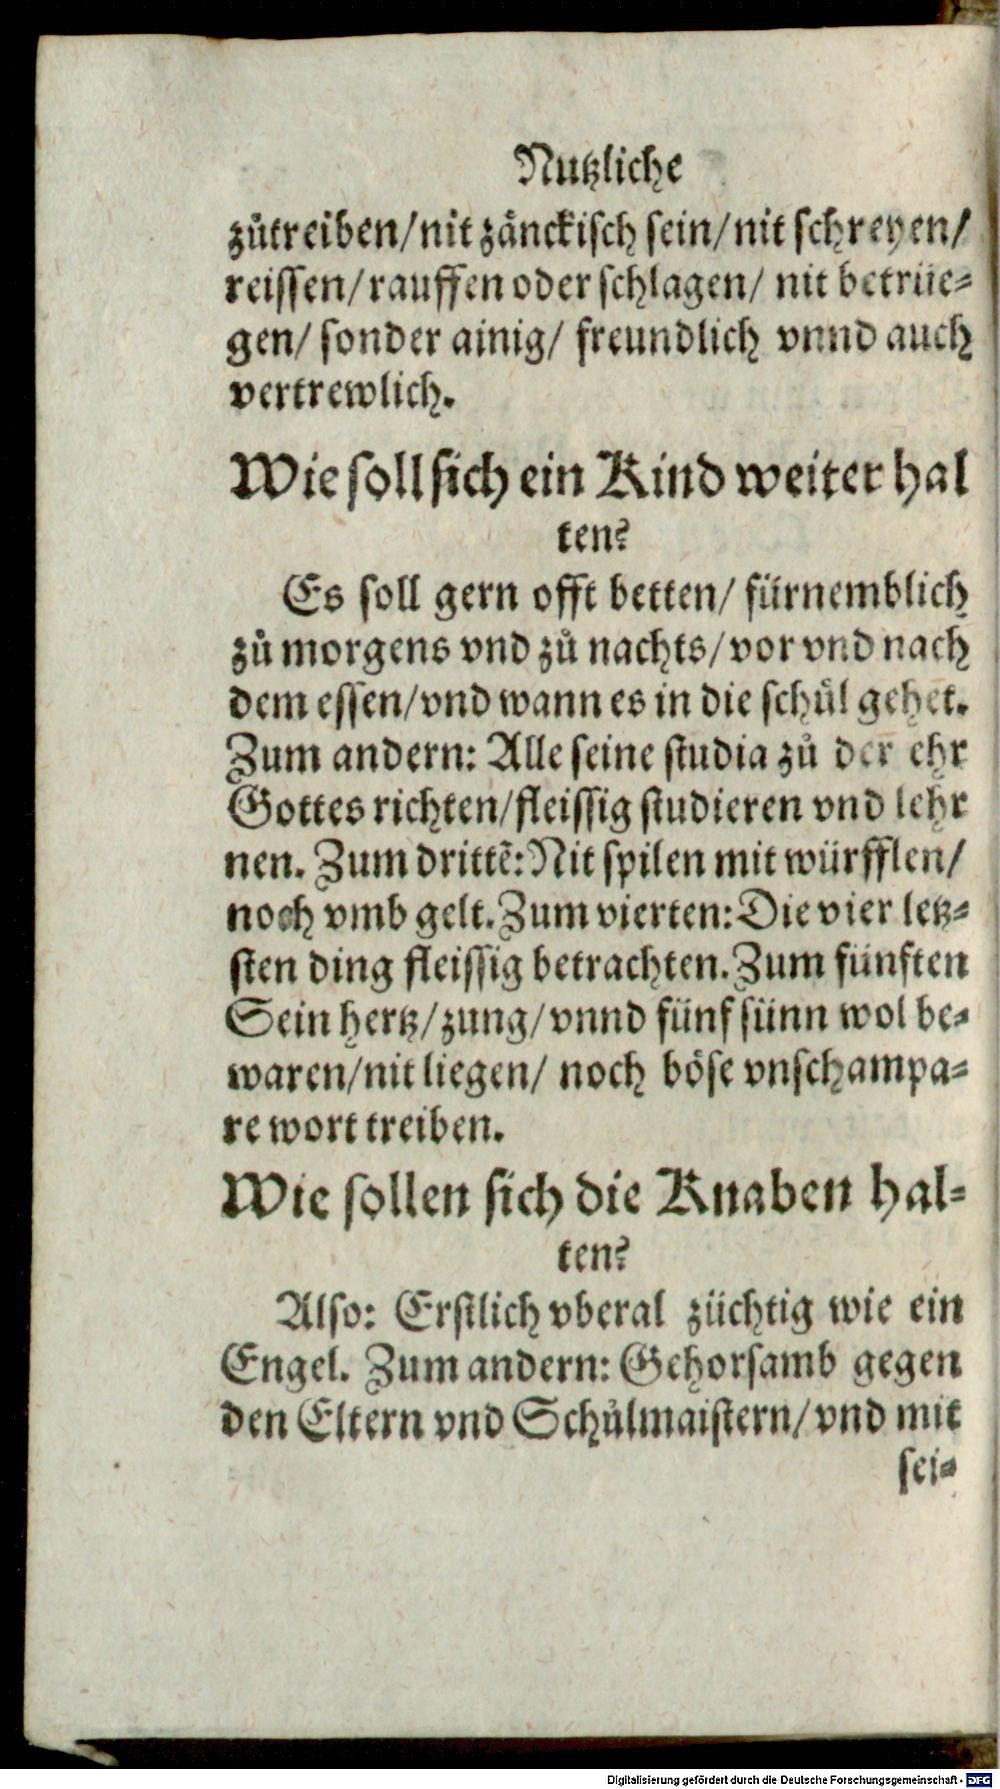 Nutzliche
zůtreiben/ nit zänckisch sein/ nit schreyen/
reissen/ rauffen oder schlagen/ nit betrüe-
gen/ sonder ainig/ freundlich vnnd auch
vertrewlich.
Wie soll sich ein Kind weiter hal
ten?
Es soll gern offt betten/ fürnemblich
zů morgens vnd zů nachts/ vor vnd nach
dem essen/ vnd wann es in die schůl gehet.
Zum andern: Alle seine studia zů der ehr
Gottes richten/ fleissig studieren vnd lehr
nen. Zum drittē: Nit spilen mit würfflen/
noch vmb gelt. Zum vierten: Die vier letz-
sten ding fleissig betrachten. Zum fünften
Sein hertz/ zung/ vnnd fünf sünn wol be-
waren/ nit liegen/ noch böse vnschampa-
re wort treiben.
Wie sollen sich die Knaben hal-
ten?
Also: Erstlich vberal züchtig wie ein
Engel. Zum andern: Gehorsamb gegen
den Eltern vnd Schůlmaistern/ vnd mit
sei-
Digitalisierung gefördert durch die Deutsche Forschungsgemeinschaft - DFG